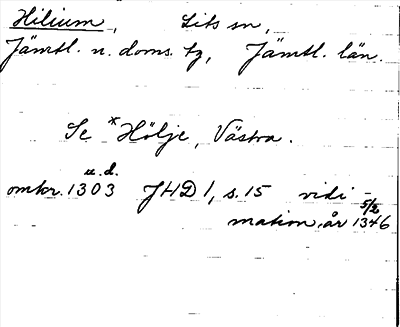 Hilium, Lits sn,
Jämtl. n. doms. tg, Jämtl. län.
Se *Hölje, Västra.
u.d.
omkr. 1303 JHD 1, s. 15 vidi-
5/2
mation, år 1346